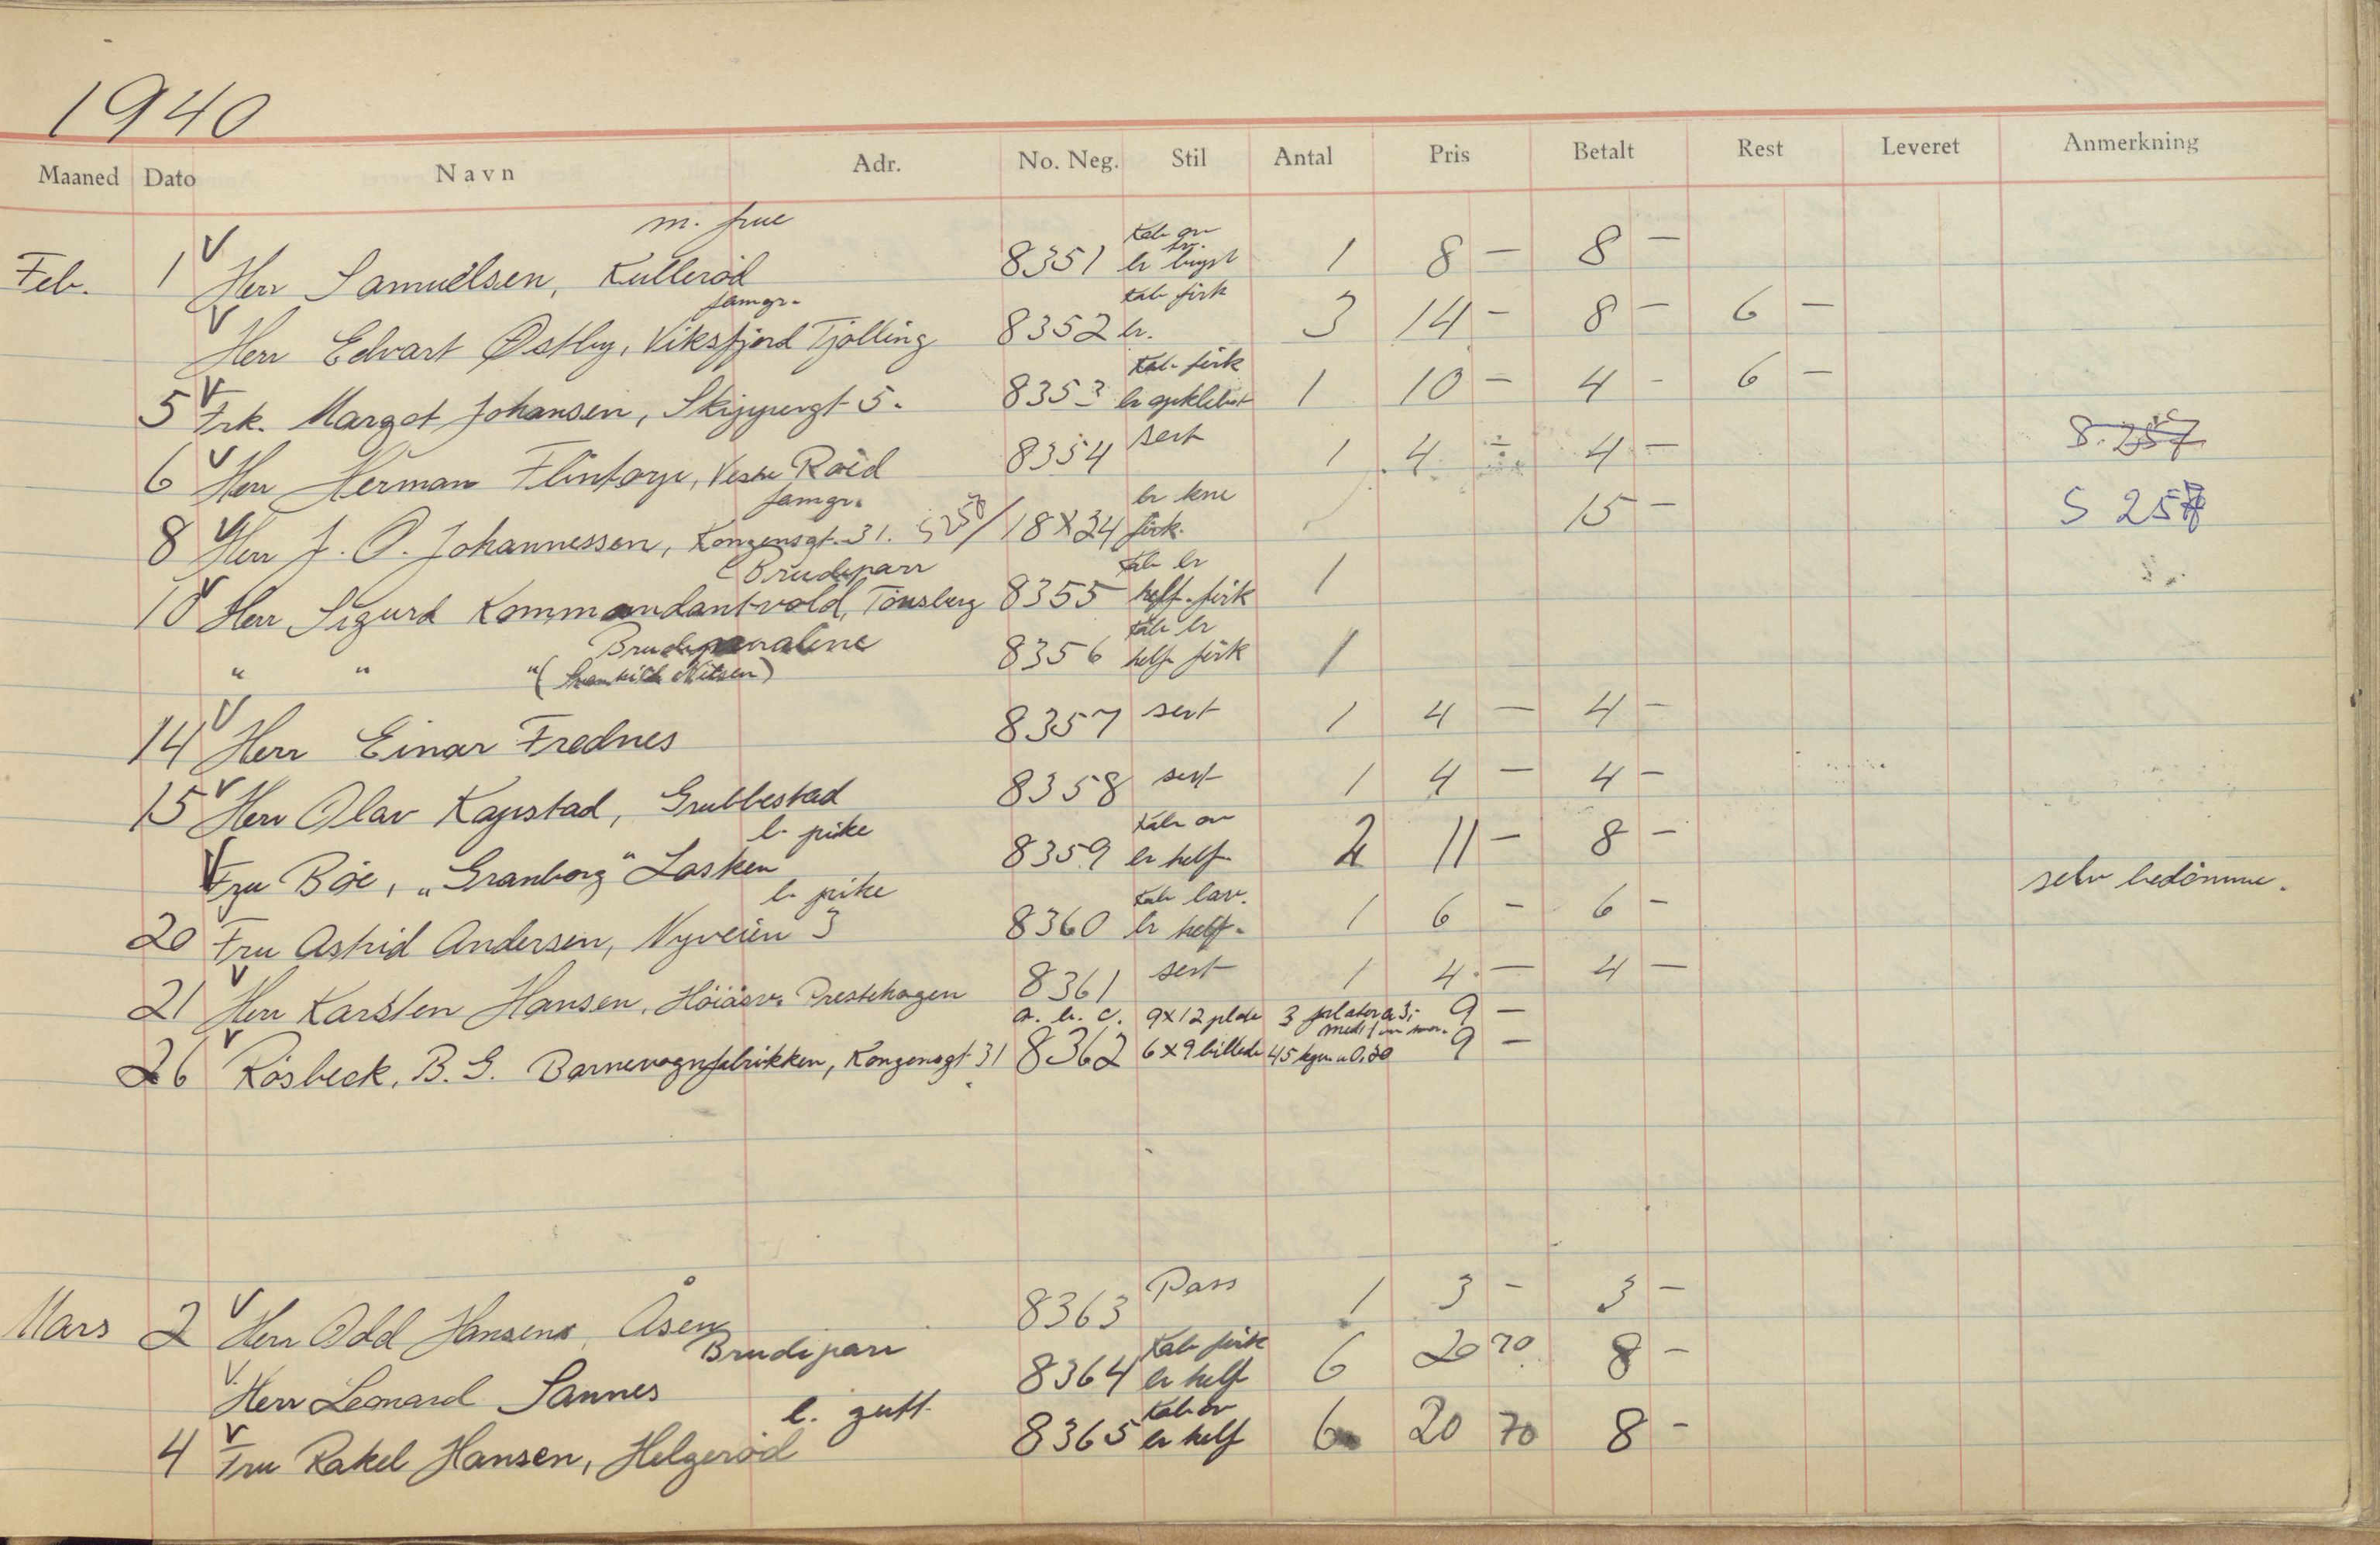 1940
Maaned Dato Navn Adr. No. Neg. Stil Antal Pris Betalt Rest Leveret Anmerkning
m. frue
Kab ov
Feb. 1 V Herr Samuelsen, Kullerød 8351 br 1 8 — 8 —
famgr. Kab firk
V Herr Edvart Østby, Viksfjord Tjølling 8352 br. 3 14 — 8 — 6 —
Kab firk
5 V Frk. Margot Johansen, Skippergt 5. 8353 br opklebet 1 10 — 4 - 6 —
6 V Herr Herman Flintorp, Vestre Roed 8354 sert 1 4 — 4 — S. 257
famgr. br kne
8 V Herr J. O. Johannessen, Kongensgt. 31. S 258/ 18X24 firk. 15 — S 257
Brudepar Kab br
10 V Herr Sigurd Kommandantvold, Tønsberg 8355 helf. firk 1
Brudeparalene Kab br
" " " ( Nilsen) 8356 helf firk 1
14 V Herr Einar Frednes 8357 sert 1 4 — 4 —
15 V Herr Olav Kapstad, Grubbestad 8358 sert 1 4 — 4 —
l. pike Kab ov
V Fru Bøe, „Granborg" Lasken 8359 br helf. 2 11 — 8 —
l. pike Kab lav. selv bedømme.
20 Fru Astrid Andersen, Nyveien 3 8360 br helf. 1 6 — 6 —
21 V Herr Karsten Hansen, Høiåsv. Prestehagen 8361 sert 1 4. — 4 —
a. b. c. 9X12 plate 3 plater a 3,- 9 —
26 V Røsbeck, B. G. Barnevognfabrikken, Kongensgt 31 8362 6X9 billede 45 a 0.20 9 —
Mars 2 V Herr Odd Hansen, Åsen 8363 Pass 1 3 — 3 —
Brudepar Kab firk
V. Herr Leonard Sannes 8364 br helf 6 20 70 8 —
l. gutt Kab ov
4 V Fru Rakel Hansen, Helgerød 8365 br helf 6 20 70 8 -